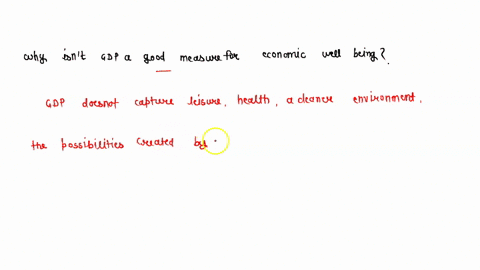 why isn't GDP a good measure for economic well being?
GDP doesnot capture leisure, health, a cleaner environment,
the possibilities created by